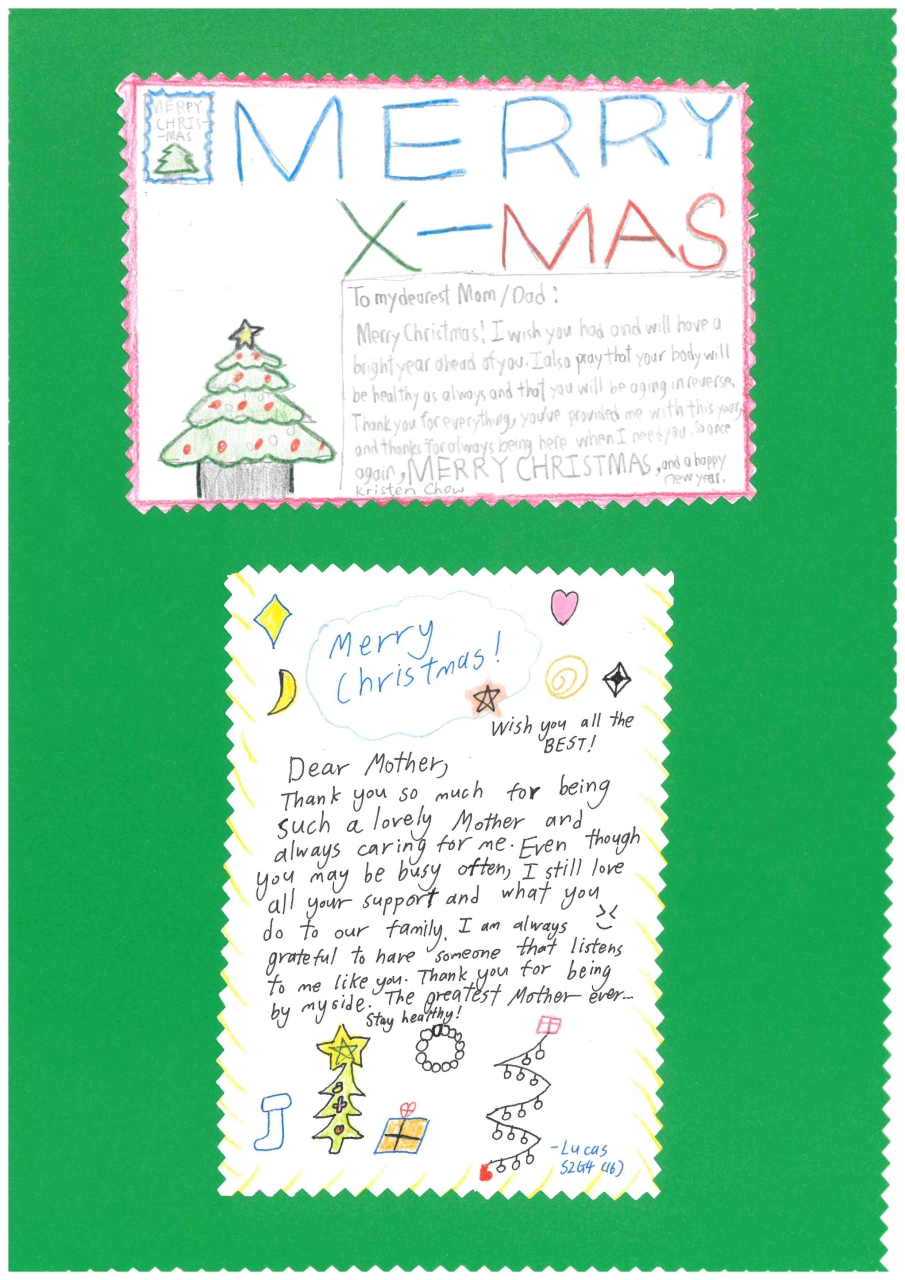 MERRY
CHRIS-
-MAS
MERRY
X-MAS
To my dearest Mom/Dad:
Merry Christmas! I wish you had and will have a
bright year ahead of you. I also pray that your body will
be healthy as always and that you will be aging in reverse.
Thank you for everything, you've provided me with this year,
and thanks for always being here when I need you. So once
again, MERRY CHRISTMAS, and a happy
new year.
Kristen Chow
Merry
Christmas!
Wish you all the
BEST!
Dear Mother,
Thank you so much for being
such a lovely Mother and
always caring for me. Even though
you may be busy often, I still love
all your support and what you
do to our family. I am always
grateful to have someone that listens
to me like you. Thank you for being
by my side. The greatest Mother ever...
Stay healthy!
-Lucas
S2G4 (16)